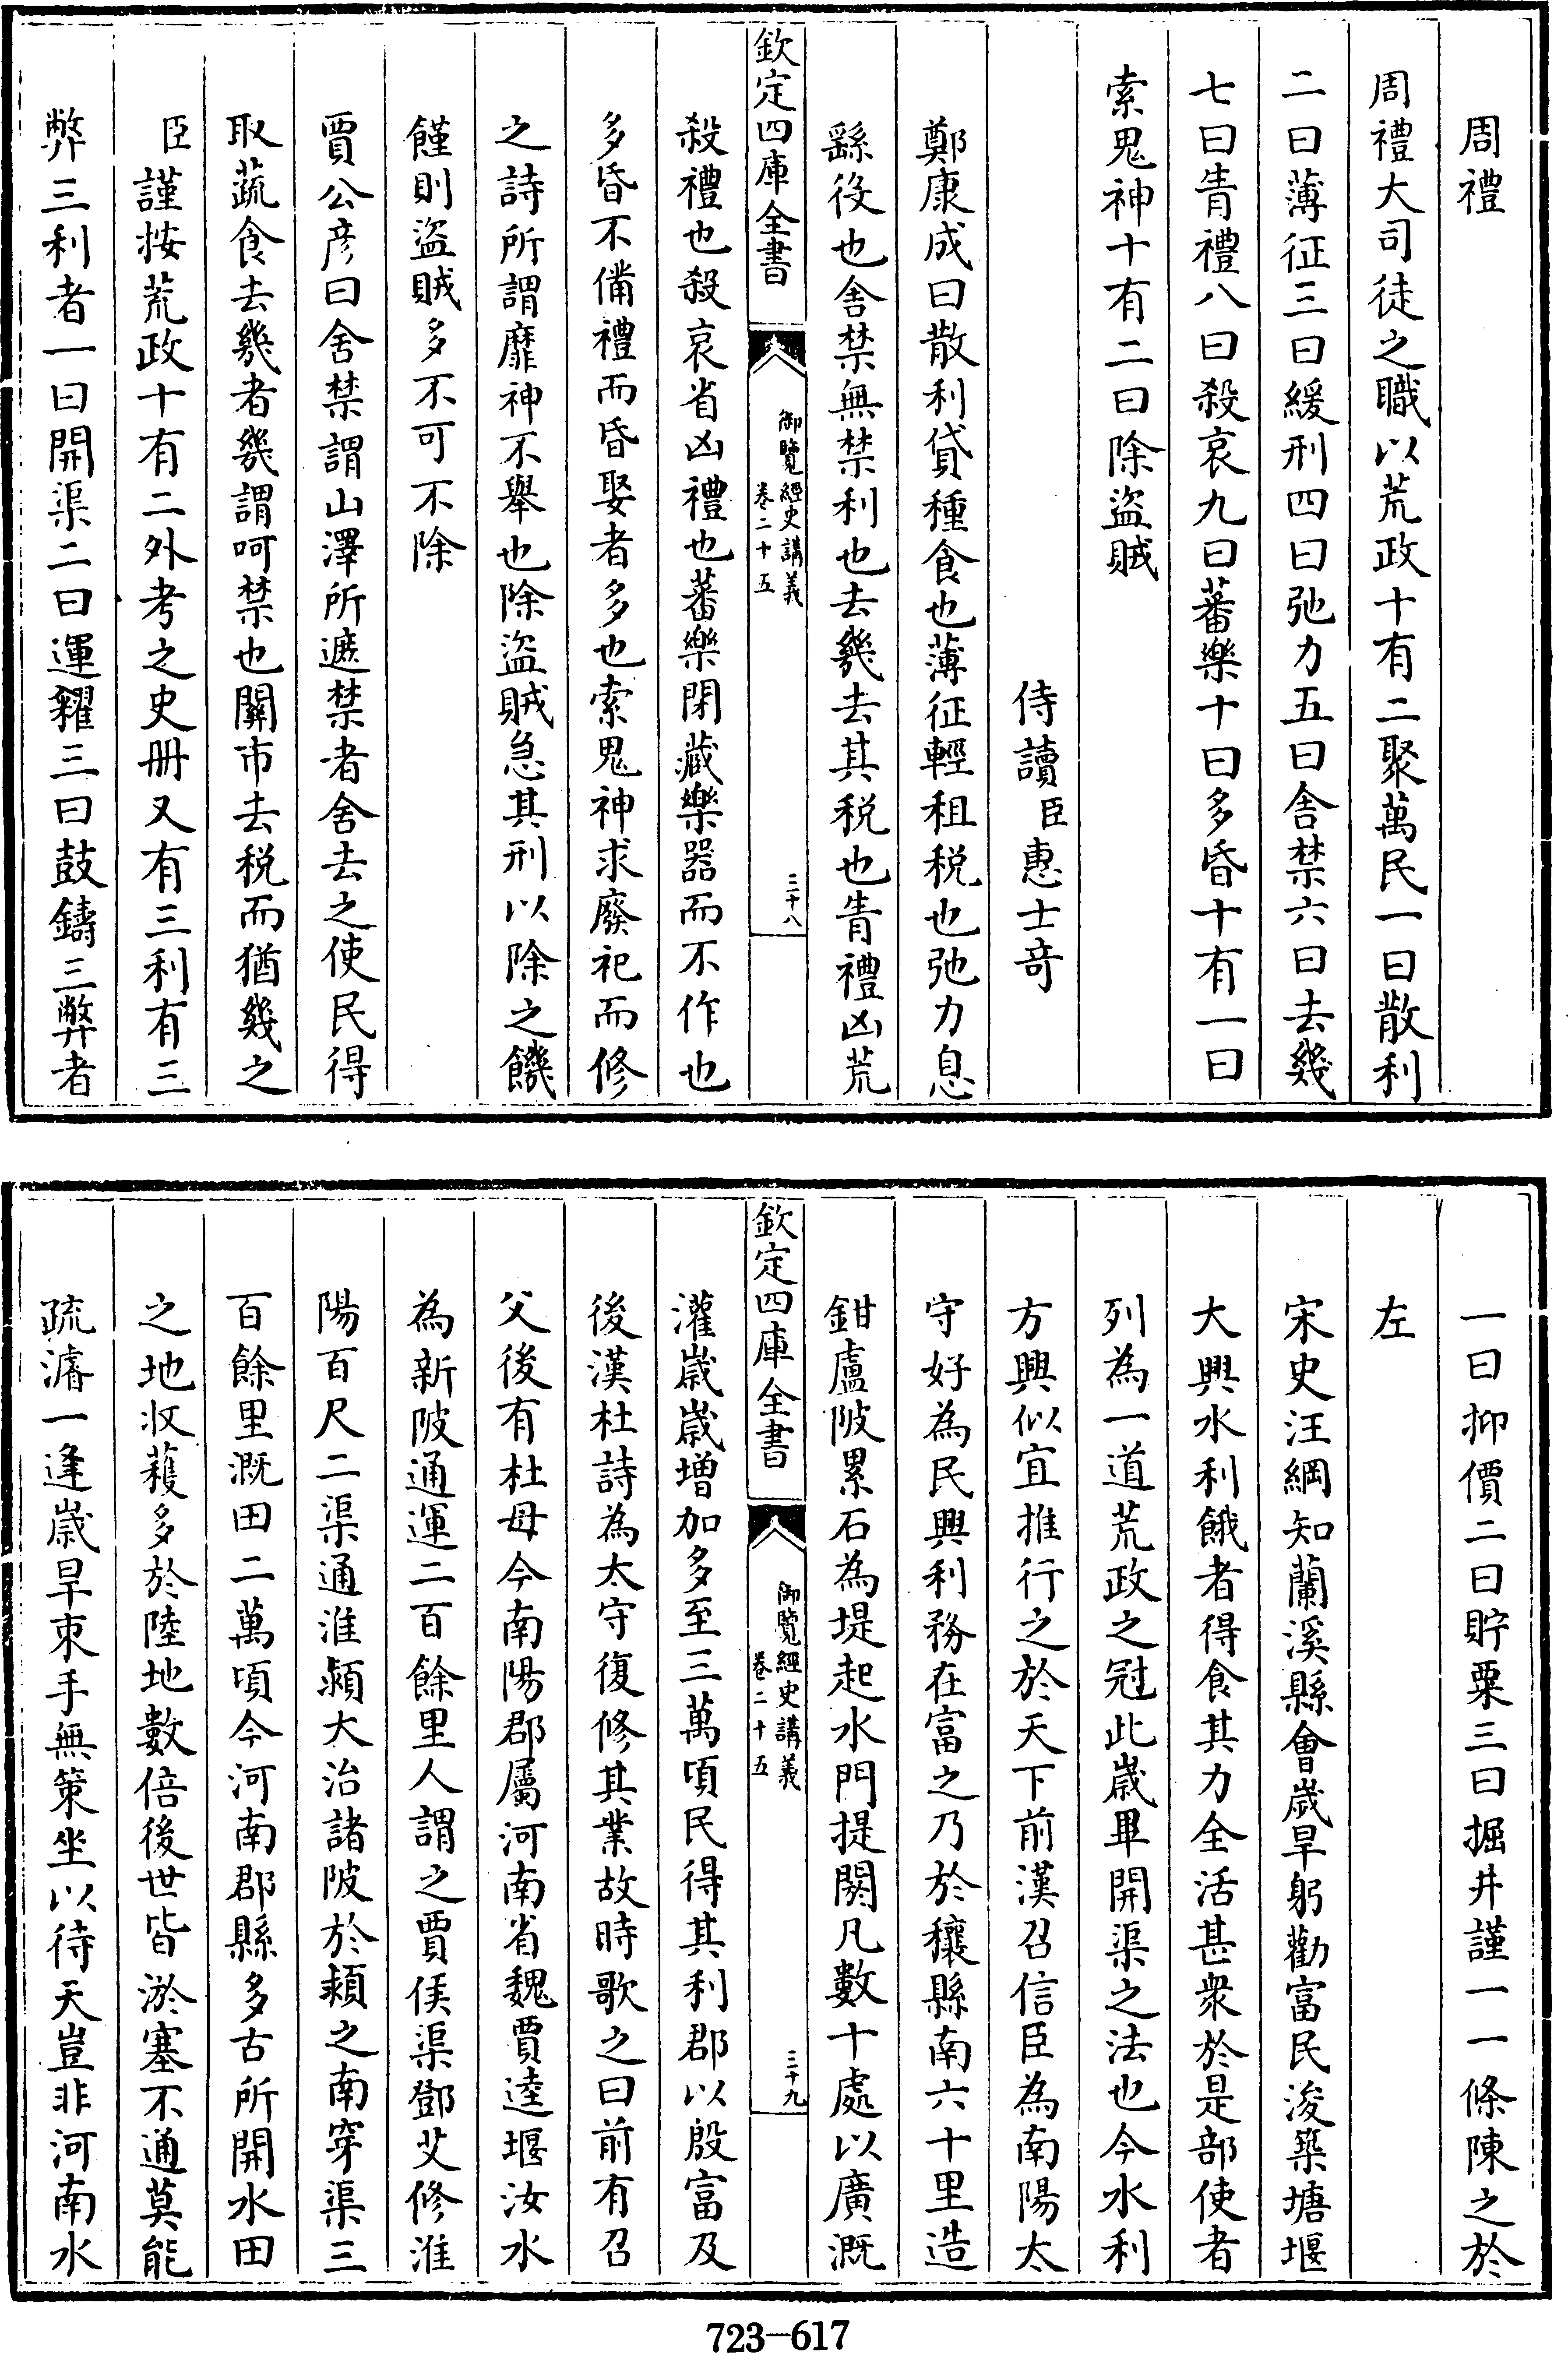 周禮
周禮大司徒之職以荒政十有二聚萬民一曰散利
二曰薄征三曰緩刑四曰弛力五曰舍禁六曰去幾
七曰眚禮八曰殺哀九曰蕃樂十曰多昏十有一曰
索鬼神十有二曰除盜賊
侍讀臣惠士竒
鄭康成曰散利貸種食也薄征輕租税也弛力息
繇役也舍禁無禁利也去幾去其税也眚禮凶荒
欽定四庫全書
御覽經史講義
卷二十五
三十八
殺禮也殺哀省凶禮也蕃樂閉藏樂器而不作也
多昏不備禮而昏娶者多也索鬼神求廢祀而修
之詩所謂靡神不舉也除盜賊急其刑以除之饑
饉則盜賊多不可不除
賈公彦曰舍禁謂山澤所遮禁者舍去之使民得
取蔬食去幾者幾謂呵禁也關市去税而猶幾之
臣謹按荒政十有二外考之史册又有三利有三
弊三利者一曰開渠二曰運糴三曰鼓鑄三弊者
一曰抑價二曰貯粟三曰掘井謹一一條陳之於
左
宋史汪綱知蘭溪縣會歲旱躬勸富民浚築塘堰
大興水利餓者得食其力全活甚衆於是部使者
列為一道荒政之冠此歲旱開渠之法也今水利
方興似宜推行之於天下前漢召信臣為南陽太
守好為民興利務在富之乃於穰縣南六十里造
鉗盧陂累石為堤起水門提閼凡數十處以廣溉
欽定四庫全書
御覽經史講義
卷二十五
三十九
灌歲歲增加多至三萬頃民得其利郡以殷富及
後漢杜詩為太守復修其業故時歌之曰前有召
父後有杜母今南陽郡屬河南省魏賈逵堰汝水
為新陂通運二百餘里人謂之賈侯渠鄧艾修淮
陽百尺二渠通淮潁大治諸陂於潁之南穿渠三
百餘里溉田二萬頃今河南郡縣多古所開水田
之地收穫多於陸地數倍後世皆淤塞不通莫能
疏濬一逢歲旱束手無策坐以待天豈非河南水
723-617